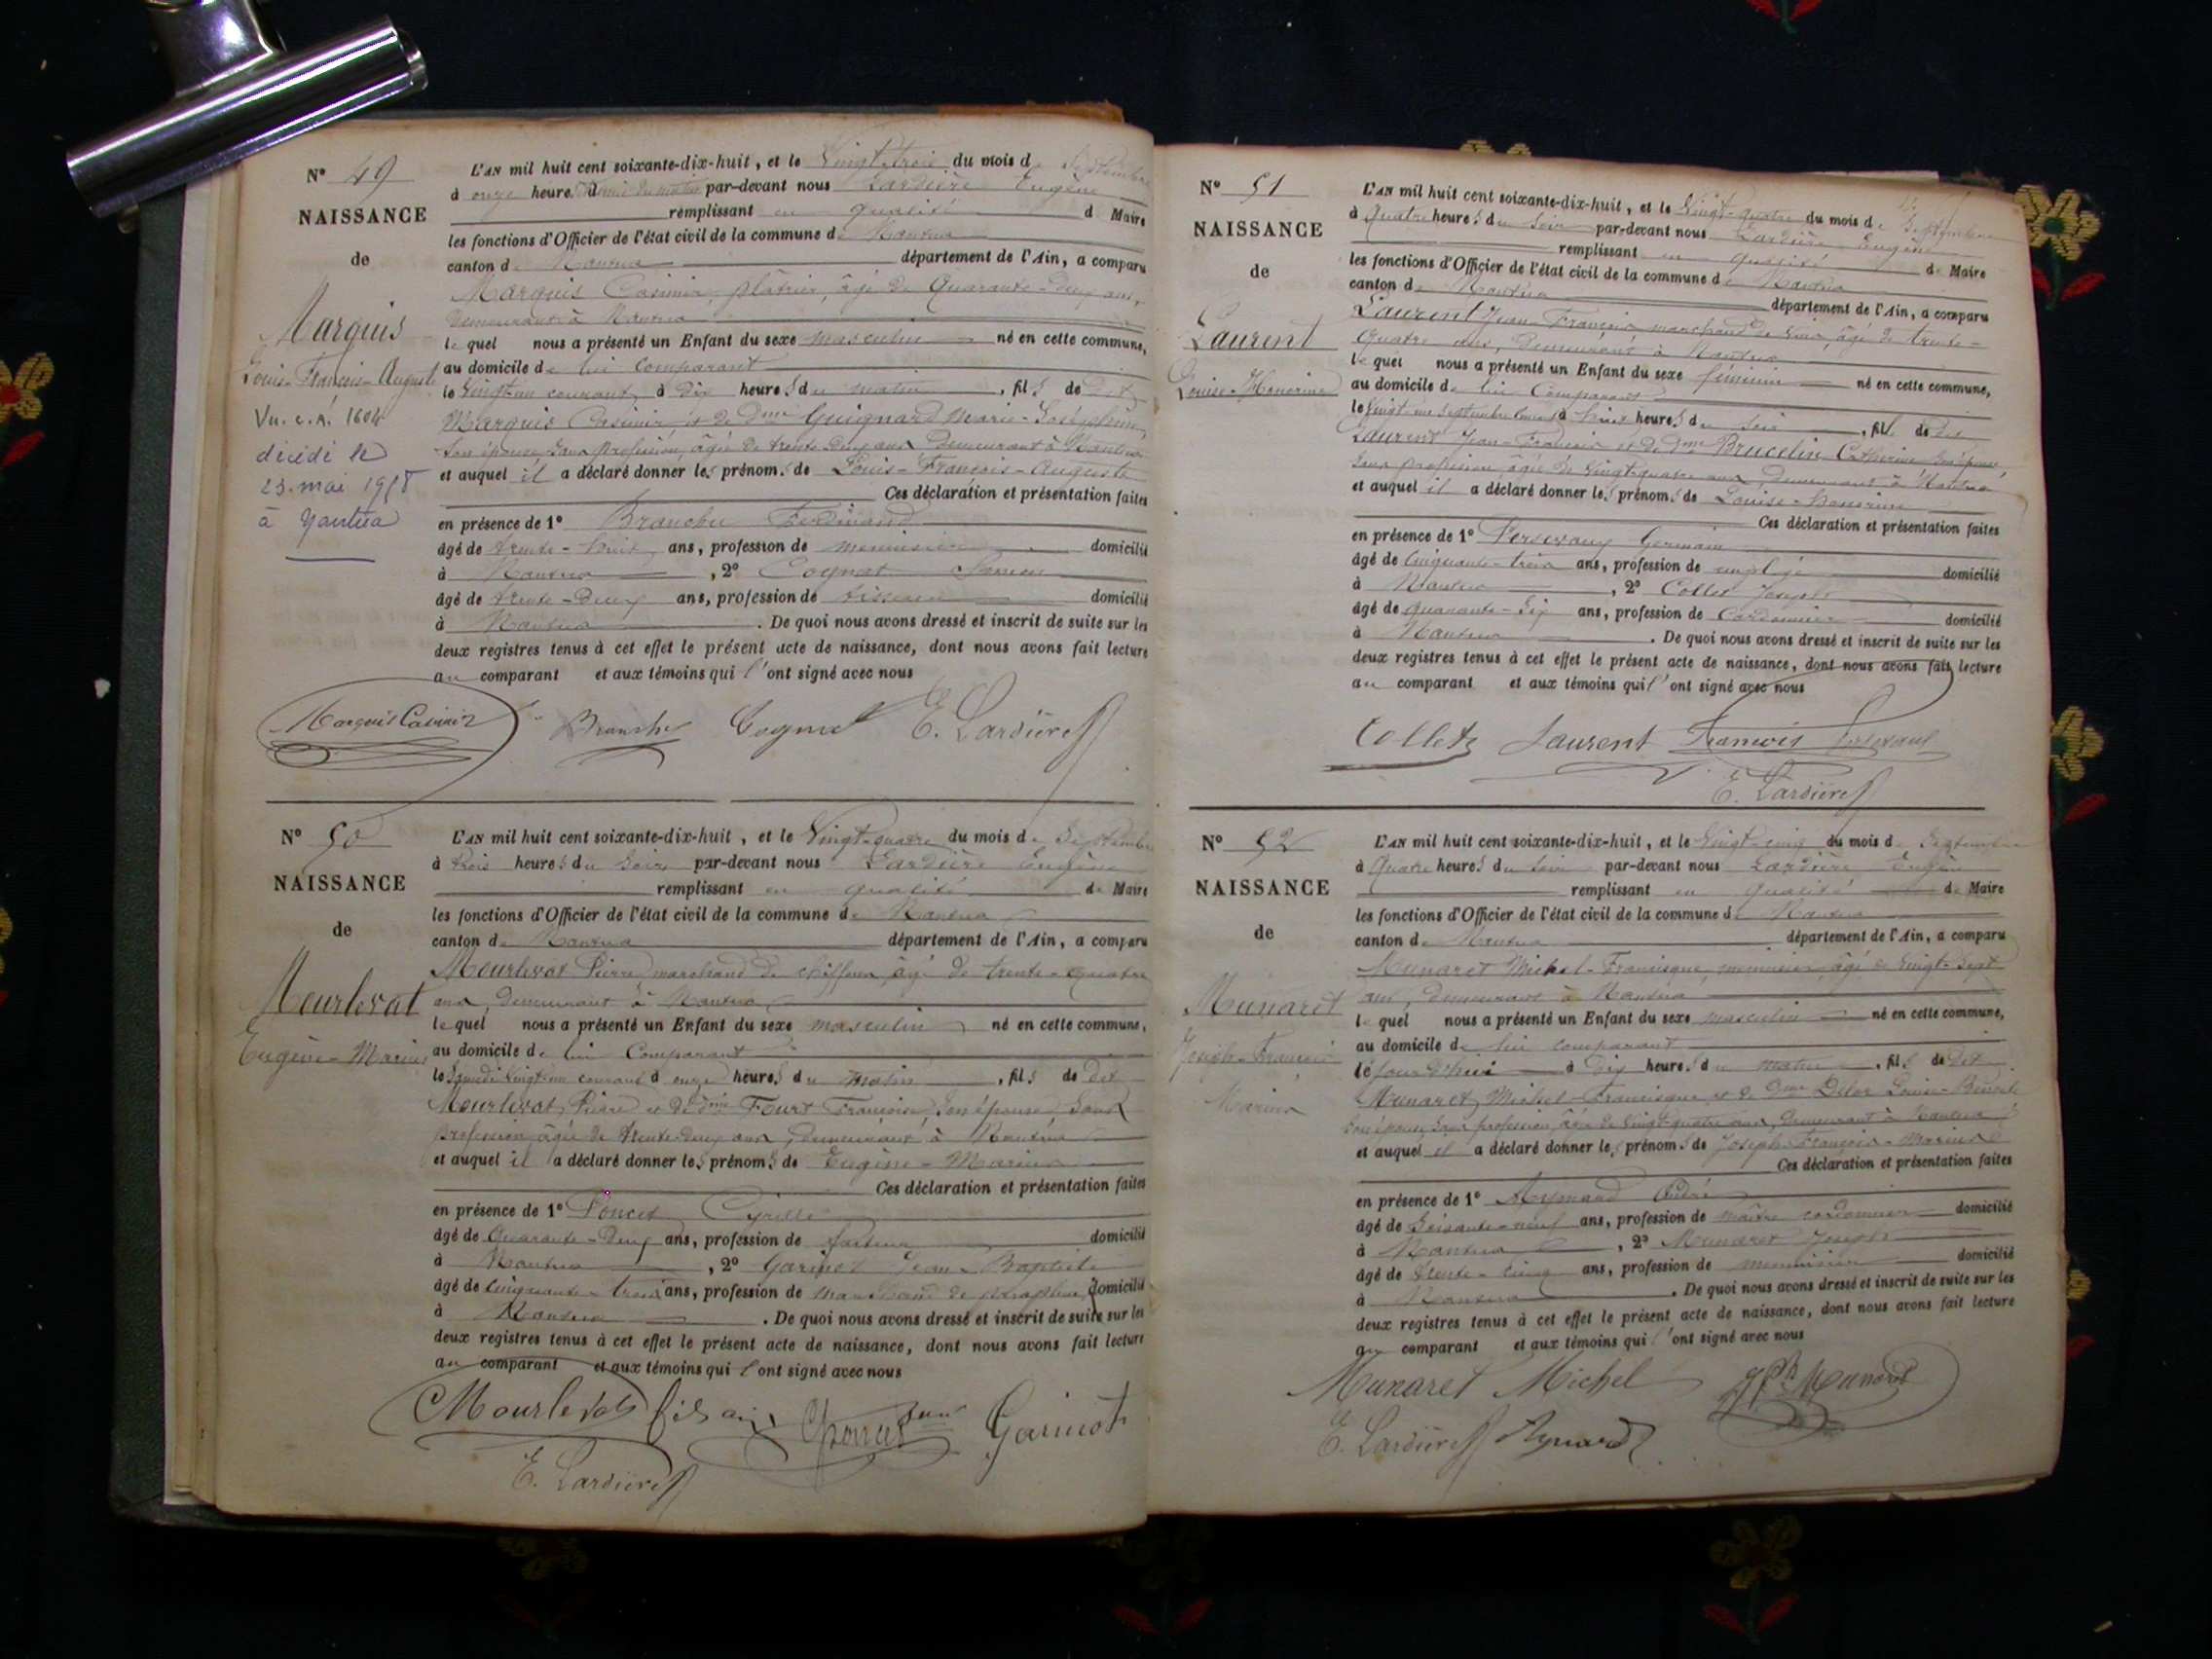 N° 49
NAISSANCE
de
Marquis
Louis-François-Auguste
Vu. c. A. 1604
décédé le
23 mai 1958
à Nantua
L'AN mil huit cent soixante-dix-huit, et le Vingt-trois du mois de Septembre
à onze heures du matin par-devant nous Lardière Eugène
remplissant en qualité de Maire
les fonctions d'Officier de l'état civil de la commune de Nantua
canton de Nantua département de l'Ain, a comparu
Marquis Casimir, plâtrier, âgé de Quarante-deux ans,
demeurant à Nantua
lequel nous a présenté un Enfant du sexe masculin né en cette commune,
au domicile de lui comparant
le Vingt-un courant, à Dix heures du matin, fils de dit
Marquis Casimir et de Dme Guignard Marie-Joséphine,
son épouse, sans profession, âgée de trente-deux ans demeurant à Nantua
et auquel il a déclaré donner les prénoms de Louis-François-Auguste
Ces déclaration et présentation faites
en présence de 1° Branche Ferdinand
âgé de trente-huit ans, profession de menuisier domicilié
à Nantua, 2° Cognat
âgé de trente-deux ans, profession de domicilié
à Nantua. De quoi nous avons dressé et inscrit de suite sur les
deux registres tenus à cet effet le présent acte de naissance, dont nous avons fait lecture
au comparant et aux témoins qui l'ont signé avec nous
Marquis Casimir Branche Cognat E. Lardière
N° 50
NAISSANCE
de
Mourlevat
Eugène-Marius
L'AN mil huit cent soixante-dix-huit, et le Vingt-quatre du mois de Septembre
à trois heures du soir par-devant nous Lardière Eugène
remplissant en qualité de Maire
les fonctions d'Officier de l'état civil de la commune de Nantua
canton de Nantua département de l'Ain, a comparu
Mourlevat Pierre, marchand de chiffons, âgé de trente-quatre
ans, demeurant à Nantua
lequel nous a présenté un Enfant du sexe masculin né en cette commune,
au domicile de lui Comparant
le Samedi Vingt-un courant à onze heures du matin, fils de dit
Mourlevat Pierre et de Dme Fourt Françoise, son épouse, sans
profession, âgée de trente-deux ans, demeurant à Nantua
et auquel il a déclaré donner les prénoms de Eugène-Marius
Ces déclaration et présentation faites
en présence de 1° Poncet Cyrille
âgé de Quarante-deux ans, profession de facteur domicilié
à Nantua, 2° Garinot Jean-Baptiste
âgé de cinquante-trois ans, profession de marchand de parapluies domicilié
à Nantua. De quoi nous avons dressé et inscrit de suite sur les
deux registres tenus à cet effet le présent acte de naissance, dont nous avons fait lecture
au comparant et aux témoins qui l'ont signé avec nous
Mourlevat fils aîné Poncet Garinot
E. Lardière
N° 51
NAISSANCE
de
Laurent
Louise-Honorine
L'AN mil huit cent soixante-dix-huit, et le Vingt-quatre du mois de Septembre
à Quatre heures du soir par-devant nous Lardière Eugène
remplissant en qualité de Maire
les fonctions d'Officier de l'état civil de la commune de Nantua
canton de Nantua département de l'Ain, a comparu
Laurent Jean-François marchand de vin, âgé de trente-
quatre ans, demeurant à Nantua
lequel nous a présenté un Enfant du sexe féminin né en cette commune,
au domicile de lui Comparant
le Vingt-un Septembre courant à huit heures du soir, fille de dit
Laurent Jean-François et de Dme Brucelin Catherine son épouse
sans profession âgée de Vingt-quatre ans, demeurant à Nantua
et auquel il a déclaré donner les prénoms de Louise-Honorine
Ces déclaration et présentation faites
en présence de 1° Germain
âgé de Cinquante-trois ans, profession de employé domicilié
à Nantua, 2° Collet Joseph
âgé de quarante-six ans, profession de Cordonnier domicilié
à Nantua. De quoi nous avons dressé et inscrit de suite sur les
deux registres tenus à cet effet le présent acte de naissance, dont nous avons fait lecture
au comparant et aux témoins qui l'ont signé avec nous
Collet Laurent François
E. Lardière
N° 52
NAISSANCE
de
Munaret
Joseph-François
Marius
L'AN mil huit cent soixante-dix-huit, et le Vingt-cinq du mois de Septembre
à Quatre heures du soir par-devant nous Lardière Eugène
remplissant en qualité de Maire
les fonctions d'Officier de l'état civil de la commune de Nantua
canton de Nantua département de l'Ain, a comparu
Munaret Michel-Francisque, menuisier, âgé de Vingt-sept
ans, demeurant à Nantua
lequel nous a présenté un Enfant du sexe masculin né en cette commune,
au domicile de lui comparant
le jourd'hui à Dix heures du matin, fils de dit
Munaret, Michel-Francisque et de Dme Louise
son épouse, sans profession, âgée de Vingt-quatre ans, demeurant à Nantua
et auquel il a déclaré donner les prénoms de Joseph-François-Marius
Ces déclaration et présentation faites
en présence de 1° Aymard André
âgé de Soixante-neuf ans, profession de maître cordonnier domicilié
à Nantua, 2° Munaret Joseph
âgé de trente-cinq ans, profession de menuisier domicilié
à Nantua. De quoi nous avons dressé et inscrit de suite sur les
deux registres tenus à cet effet le présent acte de naissance, dont nous avons fait lecture
au comparant et aux témoins qui l'ont signé avec nous
Munaret Michel Jph Munaret
E. Lardière Aymard